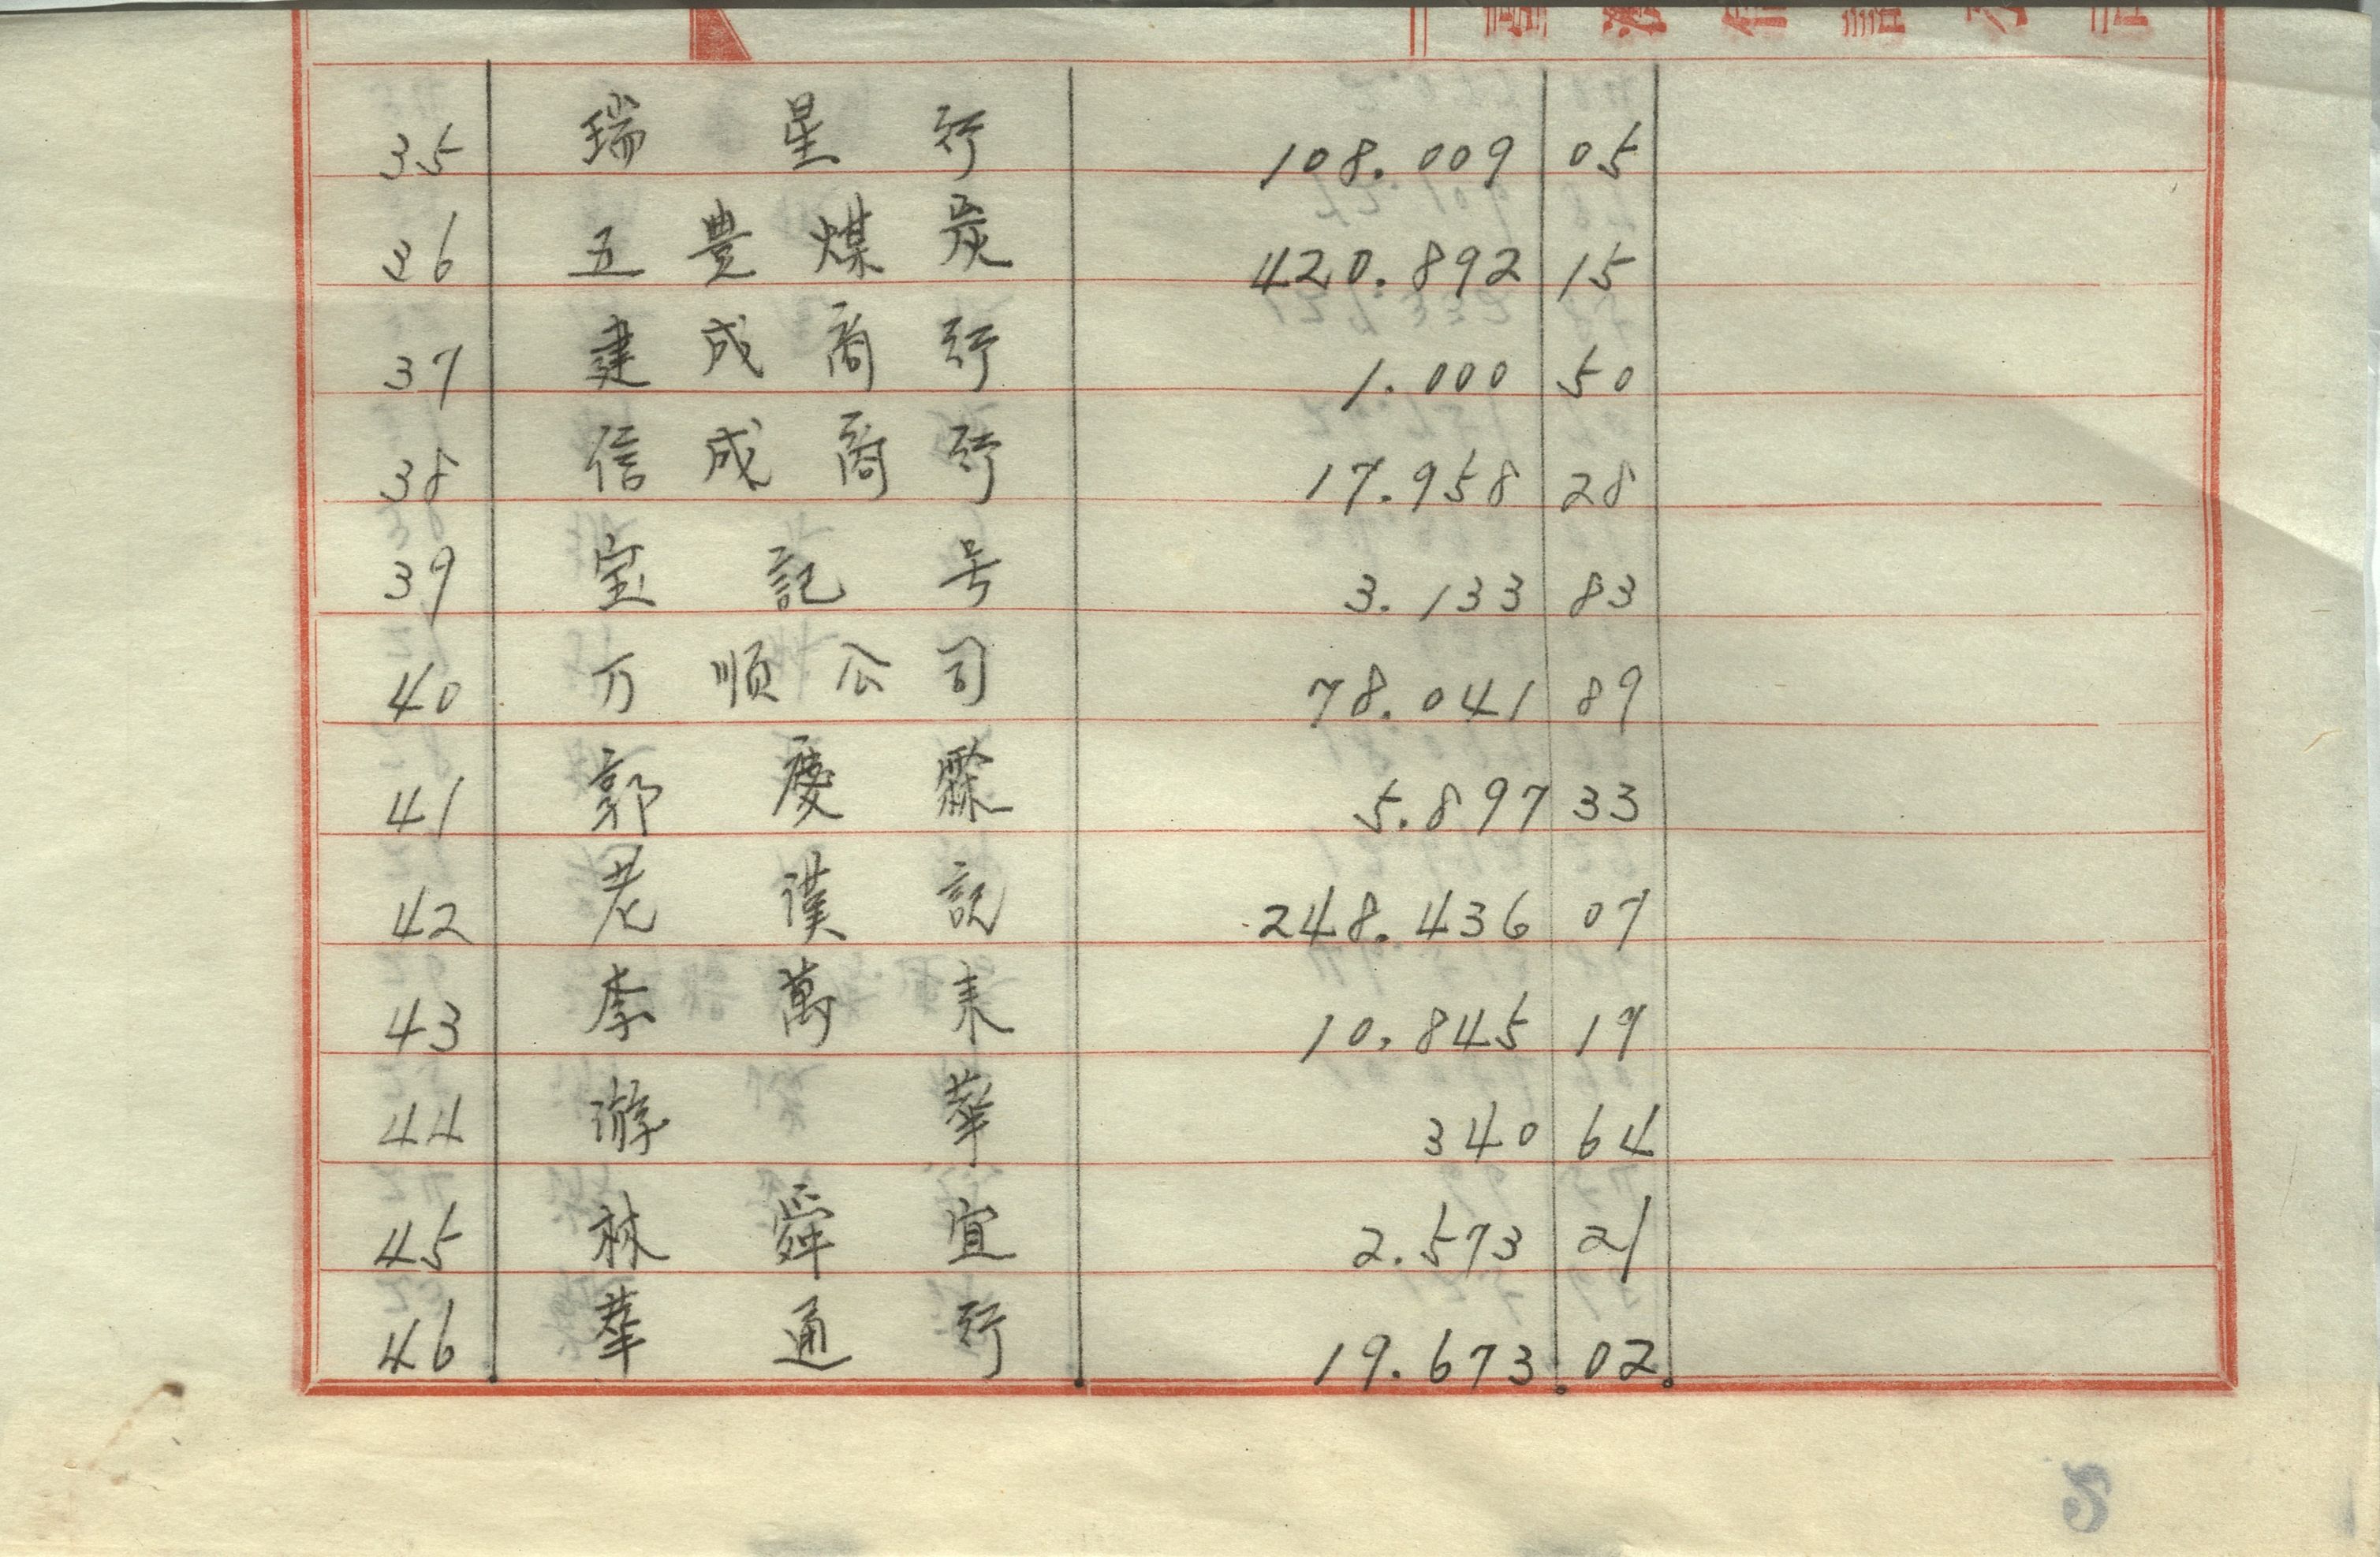 35 瑞星行 108.009 05
36 五豊煤炭 420.892 15
37 建成商行 1.000 50
38 信成商行 17.958 28
39 宝記号 3.133 83
40 万順公司 78.041 89
41 郭慶霖 5.897 33
42 老漢記 248.436 07
43 李萬来 10.845 19
44 游華 340 64
45 林舜宜 2.573 21
46 華通行 19.673.02